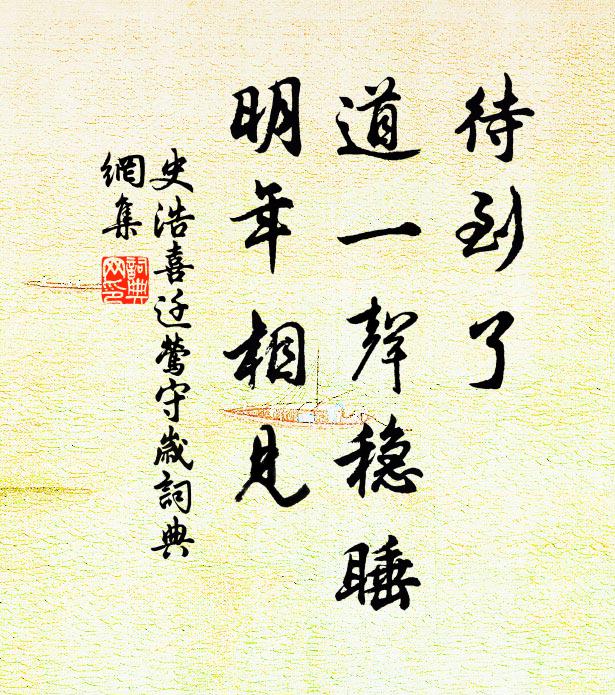 待到了
道一聲穩睡
明年相見
史浩喜迁鶯守歲詞典
網集
詞典
网